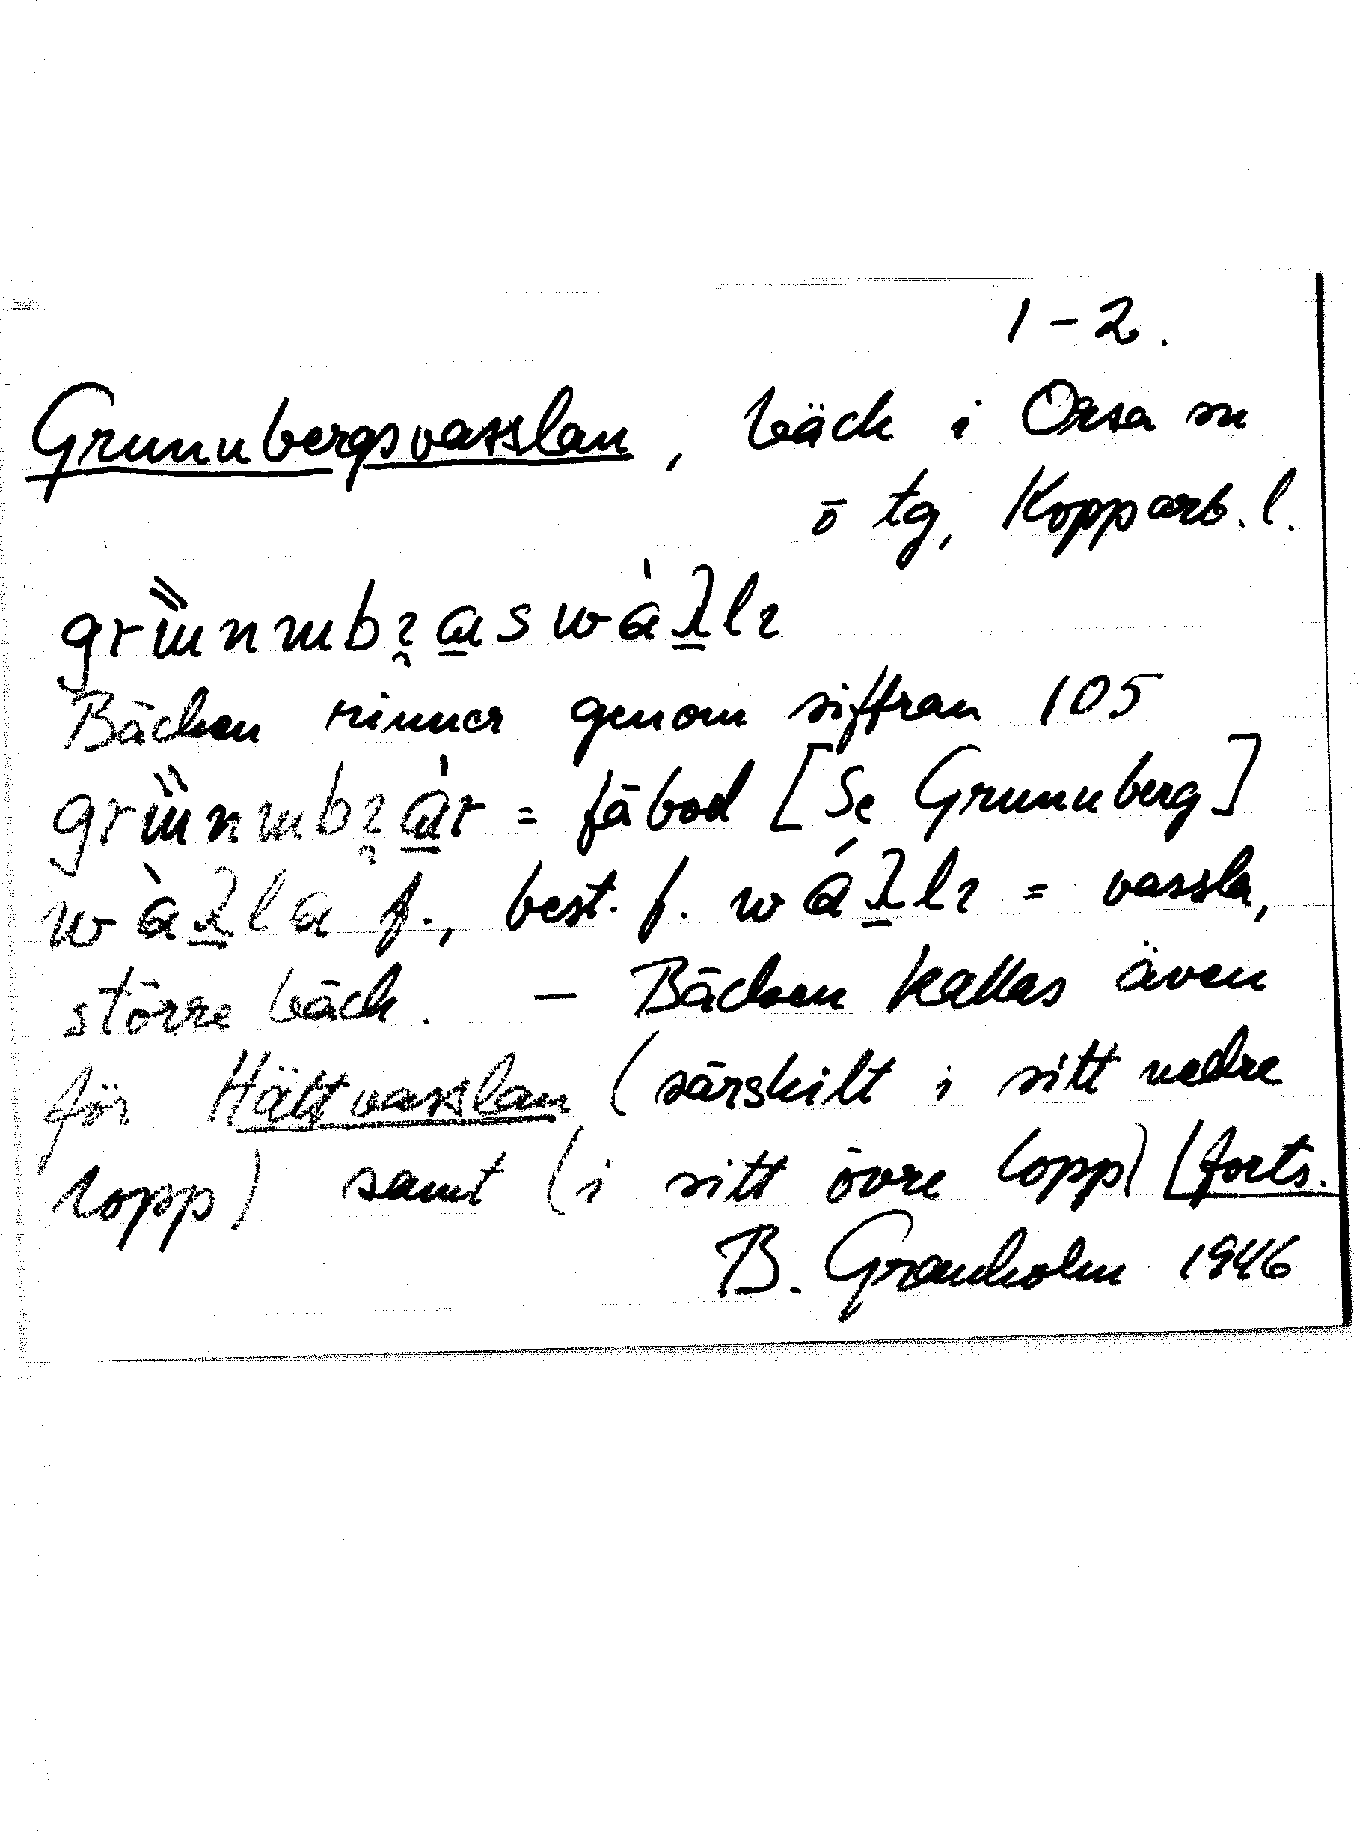 1-2.
Grunubergsvasslan, bäck i Orsa sn
ö tg, Kopparb. l.
Bäcken rinner genom siffran 105
= fäbod [Se Grunuberg]
f., best. f. = vassla,
större bäck. — Bäcken kallas även
för Hältvasslan (särskilt i sitt nedre
lopp) samt (i sitt övre lopp) [forts.
B. Granholm 1946